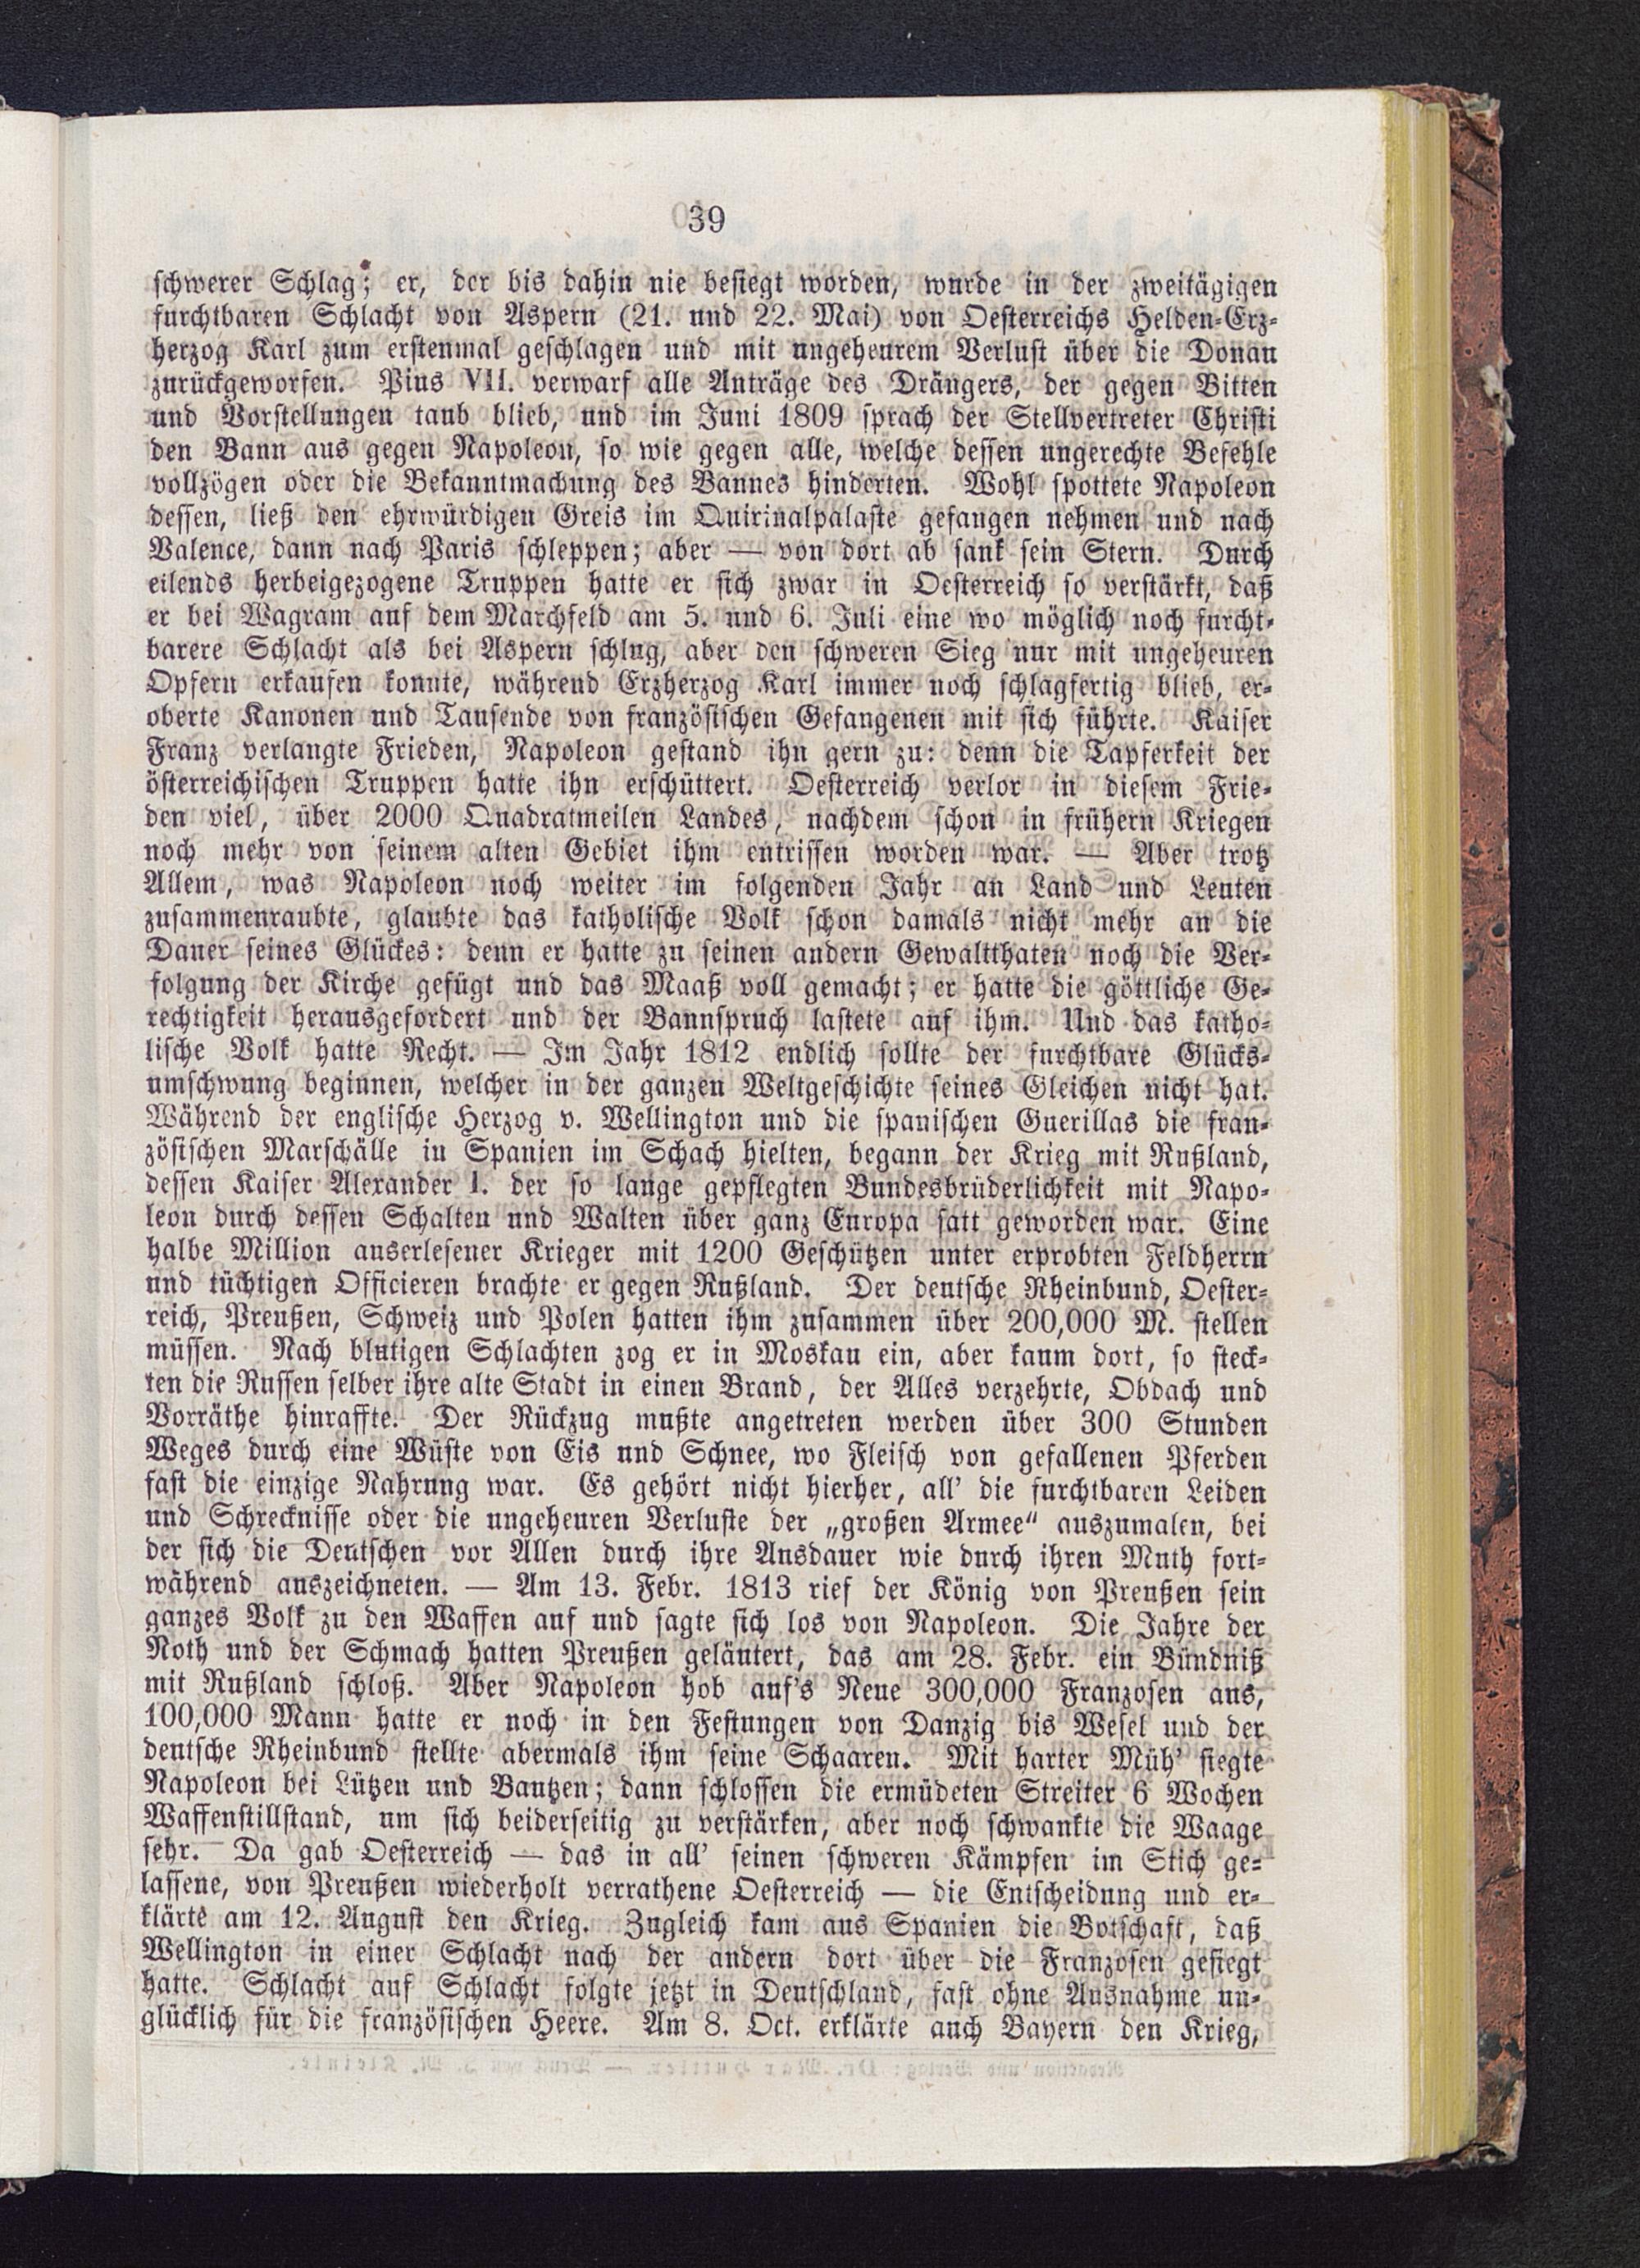 39
schwerer Schlag; er, der bis dahin nie besiegt worden, wurde in der zweitägigen
furchtbaren Schlacht von Aspern (21. und 22. Mai) von Oesterreichs Helden-Erz-
herzog Karl zum erstenmal geschlagen und mit ungeheurem Verlust über die Donau
zurückgeworfen. Pius VII. verwarf alle Anträge des Drängers, der gegen Bitten
und Vorstellungen taub blieb, und im Juni 1809 sprach der Stellvertreter Christi
den Bann aus gegen Napoleon, so wie gegen alle, welche dessen ungerechte Befehle
vollzögen oder die Bekanntmachung des Bannes hinderten. Wohl spottete Napoleon
dessen, ließ den ehrwürdigen Greis im Quirinalpalaste gefangen nehmen und nach
Valence, dann nach Paris schleppen; aber — von dort ab sank sein Stern. Durch
eilends herbeigezogene Truppen hatte er sich zwar in Oesterreich so verstärkt, daß
er bei Wagram auf dem Marchfeld am 5. und 6. Juli eine wo möglich noch furcht-
barere Schlacht als bei Aspern schlug, aber den schweren Sieg nur mit ungeheuren
Opfern erkaufen konnte, während Erzherzog Karl immer noch schlagfertig blieb, er-
oberte Kanonen und Tausende von französischen Gefangenen mit sich führte. Kaiser
Franz verlangte Frieden, Napoleon gestand ihn gern zu: denn die Tapferkeit der
österreichischen Truppen hatte ihn erschüttert. Oesterreich verlor in diesem Frie-
den viel, über 2000 Quadratmeilen Landes, nachdem schon in frühern Kriegen
noch mehr von seinem alten Gebiet ihm entrissen worden war. — Aber trotz
Allem, was Napoleon noch weiter im folgenden Jahr an Land und Leuten
zusammenraubte, glaubte das katholische Volk schon damals nicht mehr an die
Dauer seines Glückes: denn er hatte zu seinen andern Gewaltthaten noch die Ver-
folgung der Kirche gefügt und das Maaß voll gemacht; er hatte die göttliche Ge-
rechtigkeit herausgefordert und der Bannspruch lastete auf ihm. Und das katho-
lische Volk hatte Recht. — Im Jahr 1812 endlich sollte der furchtbare Glücks-
umschwung beginnen, welcher in der ganzen Weltgeschichte seines Gleichen nicht hat.
Während der englische Herzog v. Wellington und die spanischen Guerillas die fran-
zösischen Marschälle in Spanien im Schach hielten, begann der Krieg mit Rußland,
dessen Kaiser Alexander I. der so lange gepflegten Bundesbrüderlichkeit mit Napo-
leon durch dessen Schalten und Walten über ganz Europa satt geworden war. Eine
halbe Million auserlesener Krieger mit 1200 Geschützen unter erprobten Feldherrn
und tüchtigen Officieren brachte er gegen Rußland. Der deutsche Rheinbund, Oester-
reich, Preußen, Schweiz und Polen hatten ihm zusammen über 200,000 M. stellen
müssen. Nach blutigen Schlachten zog er in Moskau ein, aber kaum dort, so steck-
ten die Russen selber ihre alte Stadt in einen Brand, der Alles verzehrte, Obdach und
Vorräthe hinraffte. Der Rückzug mußte angetreten werden über 300 Stunden
Weges durch eine Wüste von Eis und Schnee, wo Fleisch von gefallenen Pferden
fast die einzige Nahrung war. Es gehört nicht hierher, all' die furchtbaren Leiden
und Schrecknisse oder die ungeheuren Verluste der „großen Armee“ auszumalen, bei
der sich die Deutschen vor Allen durch ihre Ausdauer wie durch ihren Muth fort-
während auszeichneten. — Am 13. Febr. 1813 rief der König von Preußen sein
ganzes Volk zu den Waffen auf und sagte sich los von Napoleon. Die Jahre der
Noth und der Schmach hatten Preußen geläutert, das am 28. Febr. ein Bündniß
mit Rußland schloß. Aber Napoleon hob auf's Neue 300,000 Franzosen aus,
100,000 Mann hatte er noch in den Festungen von Danzig bis Wesel und der
deutsche Rheinbund stellte abermals ihm seine Schaaren. Mit harter Müh' siegte
Napoleon bei Lützen und Bautzen; dann schlossen die ermüdeten Streiter 6 Wochen
Waffenstillstand, um sich beiderseitig zu verstärken, aber noch schwankte die Waage
sehr. Da gab Oesterreich — das in all' seinen schweren Kämpfen im Stich ge-
lassene, von Preußen wiederholt verrathene Oesterreich — die Entscheidung und er-
klärte am 12. August den Krieg. Zugleich kam aus Spanien die Botschaft, daß
Wellington in einer Schlacht nach der andern dort über die Franzosen gesiegt
hatte. Schlacht auf Schlacht folgte jetzt in Deutschland, fast ohne Ausnahme un-
glücklich für die französischen Heere. Am 8. Oct. erklärte auch Bayern den Krieg,